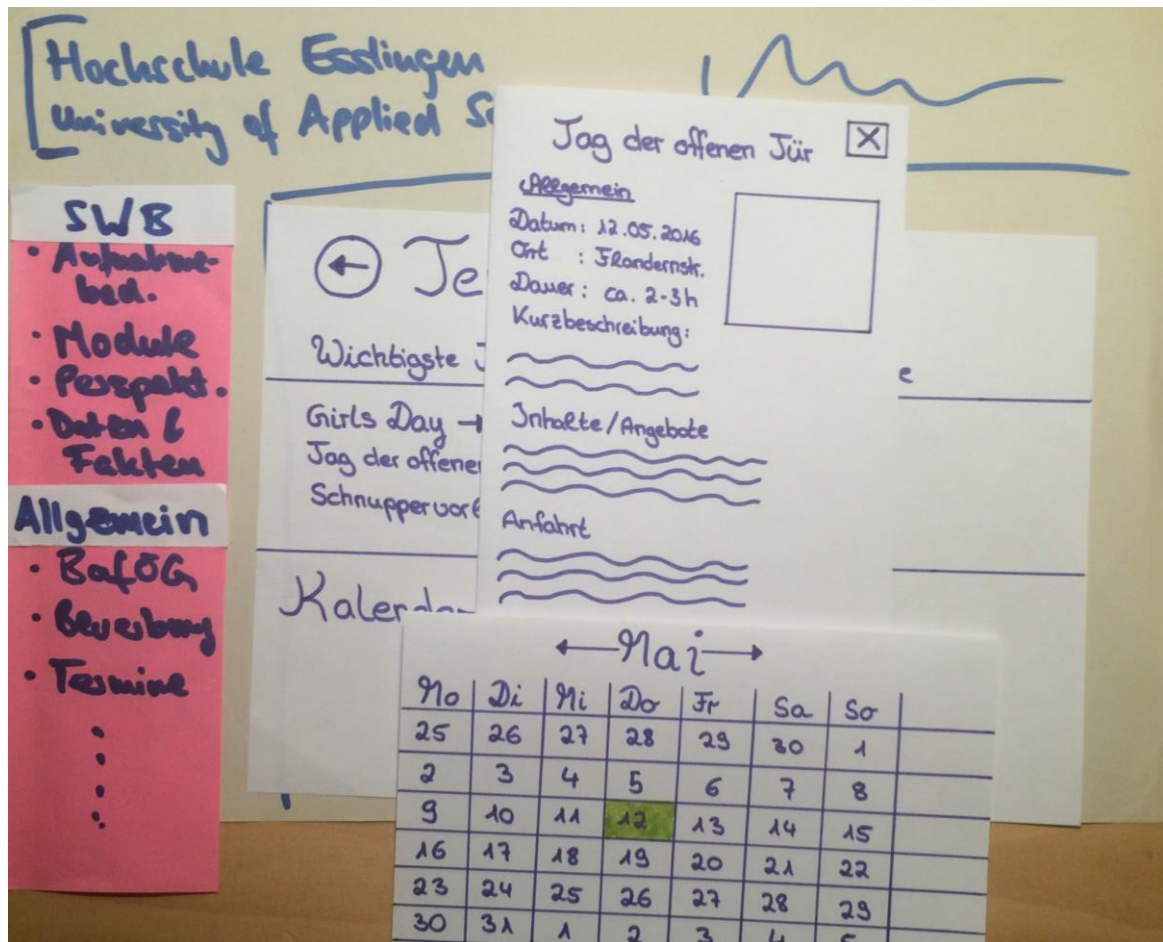 Hochschule Esslingen
University of Applied S
SWB
• Aufnahme-
bed.
• Module
• Perspekt.
• Daten &
Fakten
Allgemein
• BaföG
• Bewerbung
• Termine
← Te
Wichtigste T
e
Girls Day →
Tag der offene
Schnuppervor
Kalender
Tag der offenen Tür X
Allgemein
Datum: 12.05.2016
Ort : Flandernstr.
Dauer: ca. 2-3h
Kurzbeschreibung:
Inhalte/Angebote
Anfahrt
← Mai →
Mo Di Mi Do Fr Sa So
25 26 27 28 29 30 1
2 3 4 5 6 7 8
9 10 11 12 13 14 15
16 17 18 19 20 21 22
23 24 25 26 27 28 29
30 31 1 2 3 4 5